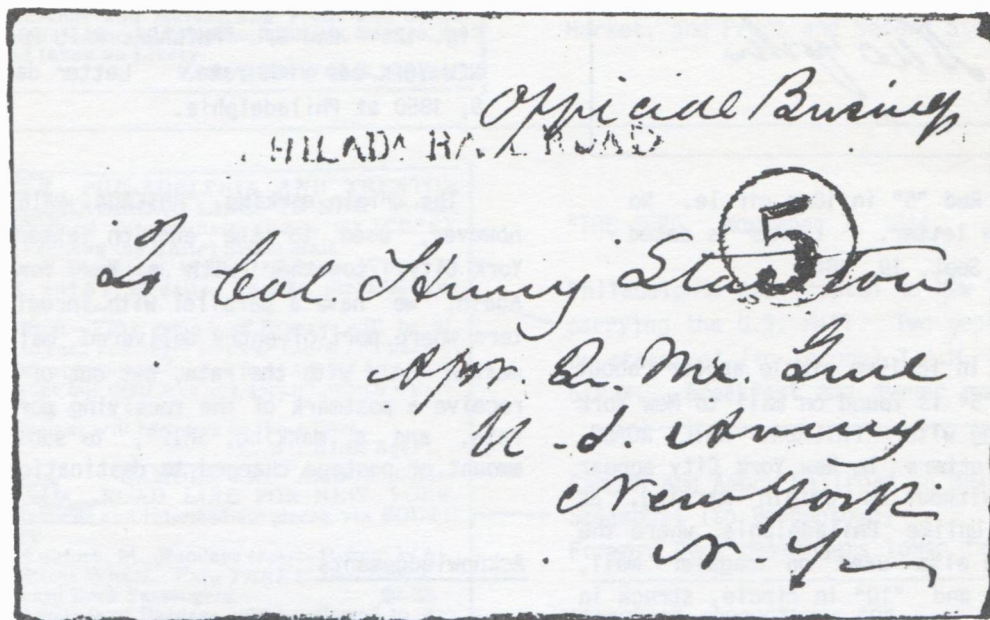 Official Business
HILADA RAILROAD
5
Lt Col Henry Stanton
Apr. Qr. Mr. Genl
U. S. Army
New York
N. Y.